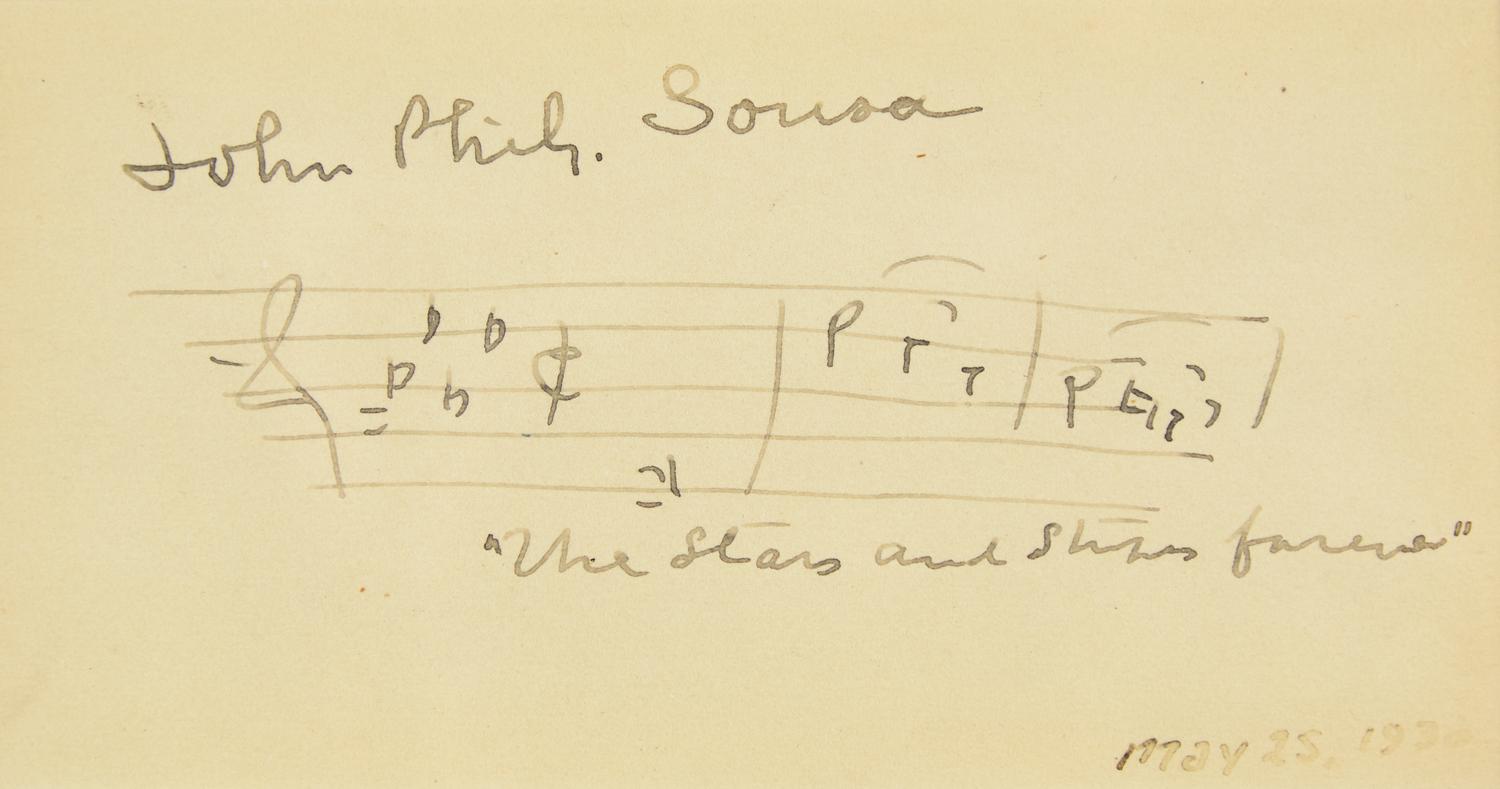 John Phil. Sousa
"The Stars and Stripes forever"
May 25, 193